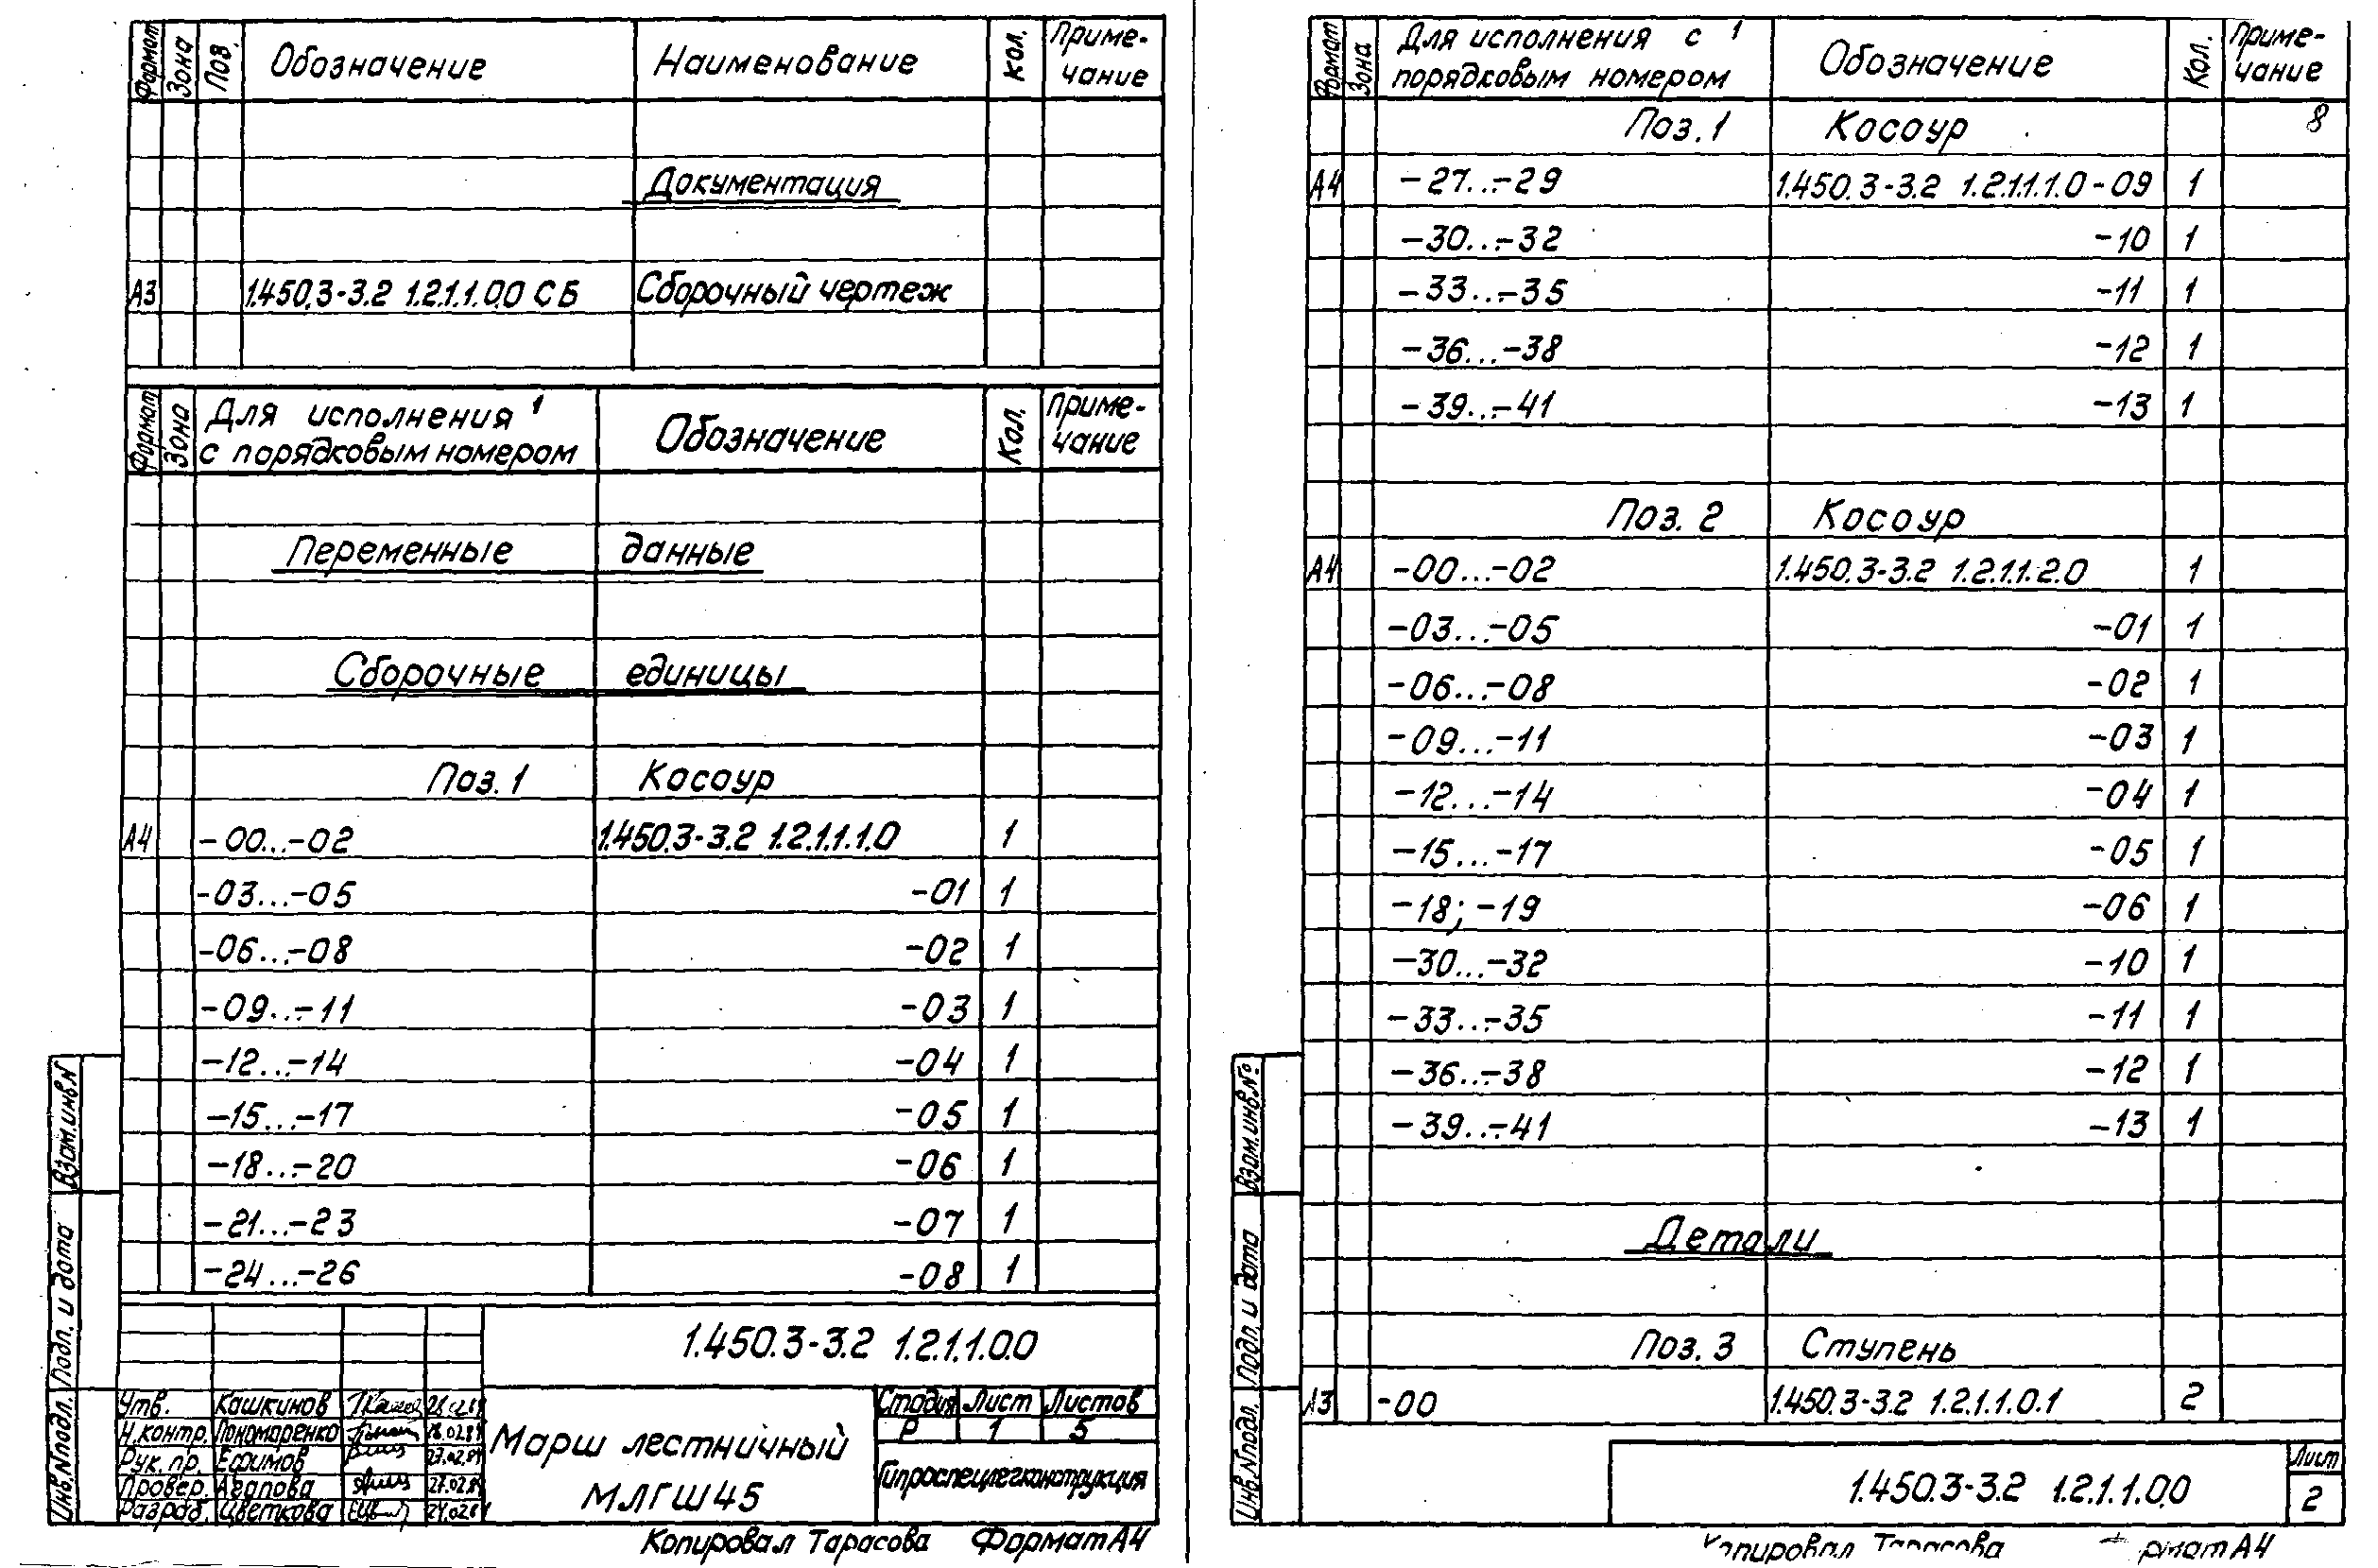 Формат Зона Поз. Обозначение Наименование Кол. Приме-
чание
Документация
А3 1.450.3-3.2 1.2.1.1.0.0 СБ Сборочный чертеж
Формат Зона Для исполнения 1 Обозначение Кол. Приме-
с порядковым номером чание
Переменные данные
Сборочные единицы
Поз. 1 Косоур
А4 -00...-02 1.450.3-3.2 1.2.1.1.1.0 1
-03...-05 -01 1
-06...-08 -02 1
-09...-11 -03 1
-12...-14 -04 1
-15...-17 -05 1
-18...-20 -06 1
-21...-23 -07 1
-24...-26 -08 1
Взам.инв.N
Подл. и дата
Инв.Nподл.
1.450.3-3.2 1.2.1.1.0.0
Утв. Кашкинов
Н.контр. Пономаренко
Рук.пр. Ефимов
Провер. Агапова
Разраб. Цветкова
Марш лестничный
МЛГШ45
Стадия Лист Листов
Р 1 5
Гипроспецлегконструкция
Копировал Тарасова Формат А4
Формат Зона Для исполнения с 1 Обозначение Кол. Приме-
порядковым номером чание
Поз. 1 Косоур 8
А4 -27...-29 1.450.3-3.2 1.2.1.1.1.0-09 1
-30...-32 -10 1
-33...-35 -11 1
-36...-38 -12 1
-39...-41 -13 1
Поз. 2 Косоур
А4 -00...-02 1.450.3-3.2 1.2.1.1.2.0 1
-03...-05 -01 1
-06...-08 -02 1
-09...-11 -03 1
-12...-14 -04 1
-15...-17 -05 1
-18; -19 -06 1
-30...-32 -10 1
-33...-35 -11 1
-36...-38 -12 1
-39...-41 -13 1
Детали
Поз. 3 Ступень
А3 -00 1.450.3-3.2 1.2.1.1.0.1 2
Взам.инв.№
Подл. и дата
Инв.Nподл.
1.450.3-3.2 1.2.1.1.0.0
Лист
2
Копировал Тарасова Формат А4